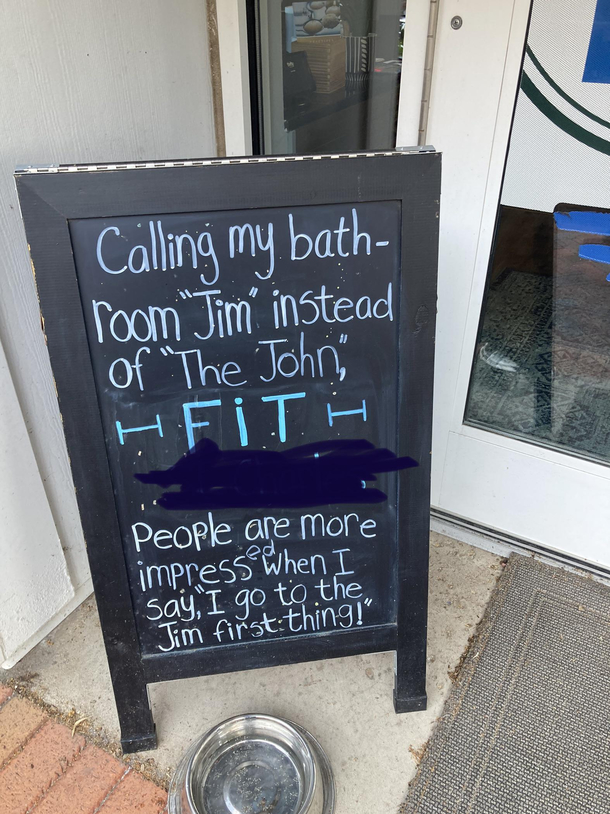 Calling my bath-
room "Jim" instead
of "The John,"
FiT
People are more
impressed when I
say, "I go to the
Jim first thing!"